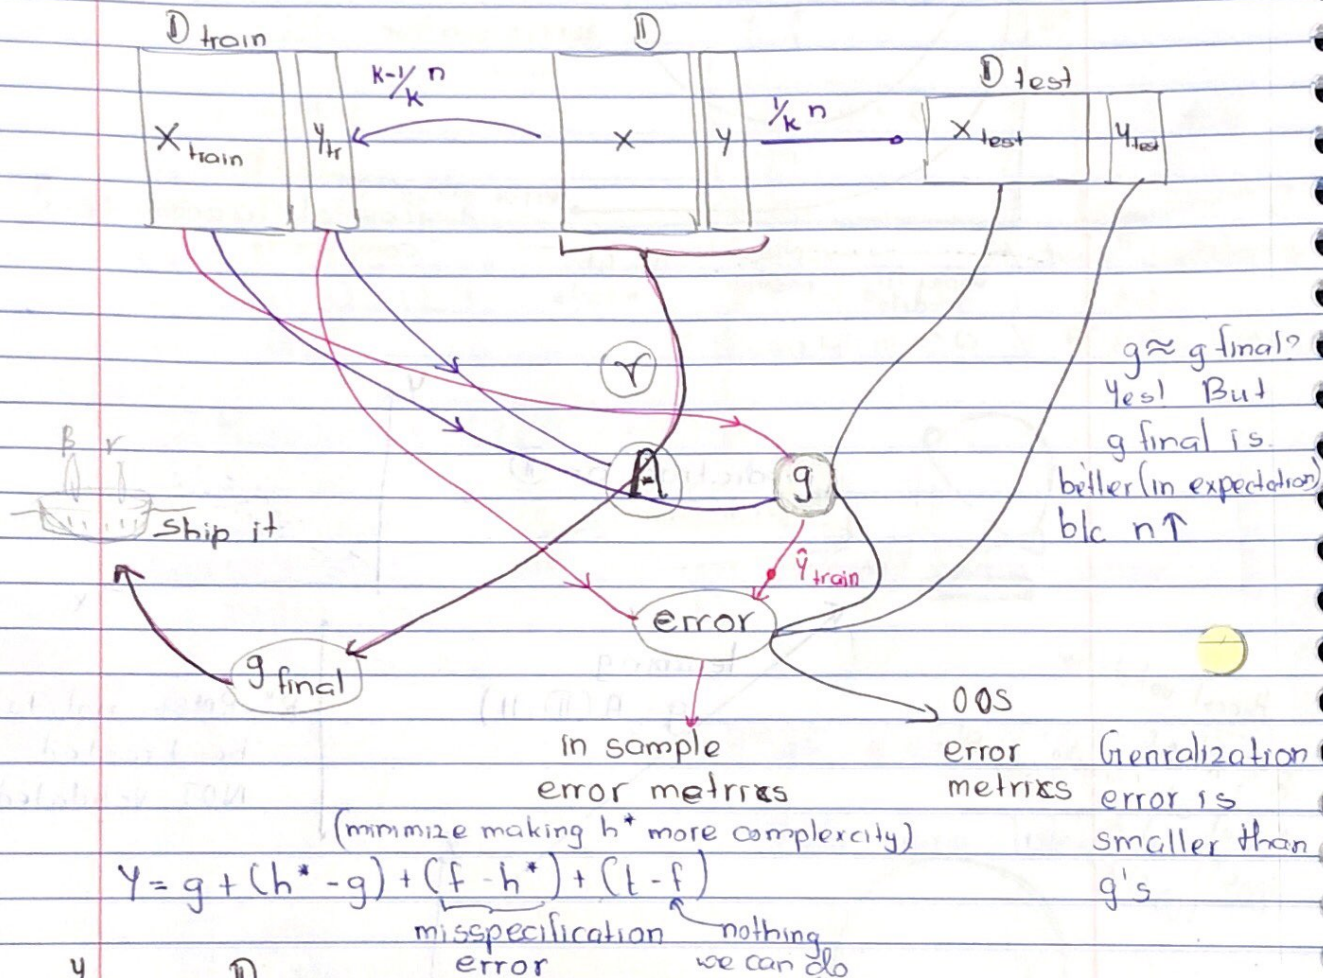 𝔻 train
𝔻
𝔻 test
X train
y tr
K-1/K n
X
y
1/K n
X test
y test
r
A
g
g ≈ g final?
Yes! But
g final is
better (in expectation)
b/c n↑
B r
Ship it
ŷ train
error
g final
OOS
error
metrics
in sample
error metrics
(minimize making h* more complexcity)
Genralization
error is
smaller than
g's
Y = g + (h* - g) + (f - h*) + (t - f)
misspecification
error
nothing
we can do
y
𝔻